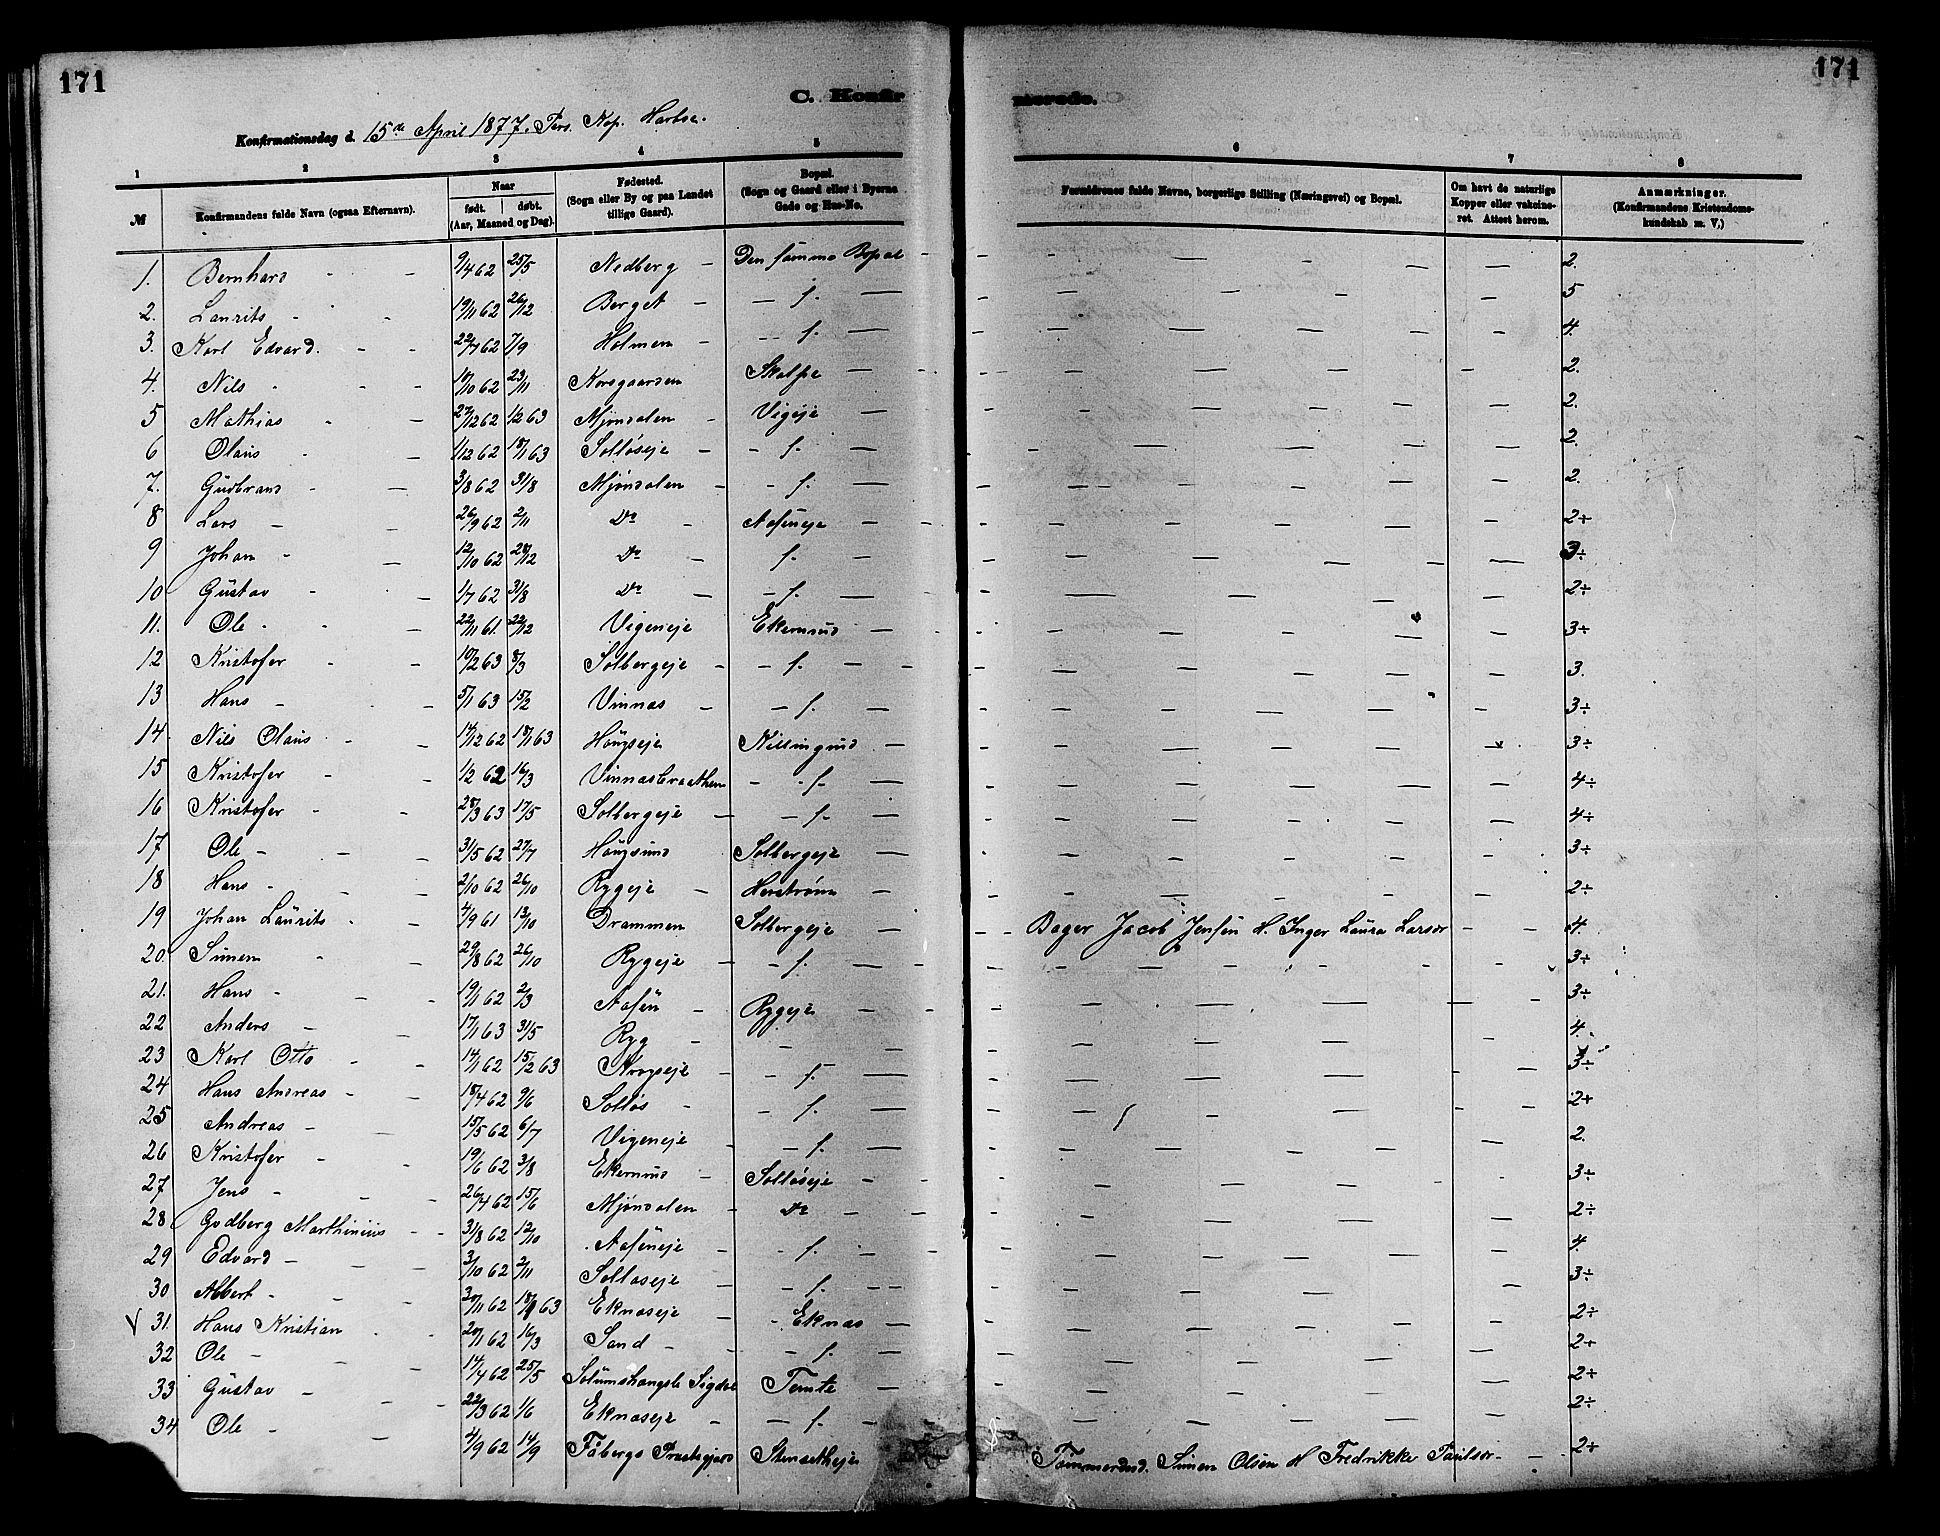 171
171
C. Konfirmerede.
Konfirmationsdag d. 15de April 1877. Pers. Kap.
1 2 3 4 5 6 7 8
№ Konfirmandens fulde Navn (ogsaa Efternavn). Naar født. døbt. (Aar, Maaned og Dag). Fødested. (Sogn eller By og paa Landet tillige Gaard). Bopæl. (Sogn og Gaard eller i Byerne Gade og Hus-No. Forældrenes fulde Navne, borgerlige Stilling (Næringsvei) og Bopæl. Om havt de naturlige Kopper eller vakcineret. Attest herom. Anmærkninger. (Konfirmandens Kristendomskundskab m. V,)
1. Bernhard - - 9/4 62 25/5 Nedberg - Den samme Bopæl - 2.
2. Laurits - - 19/11 62 26/12 Berget - - f. - 5
3. Karl Edvard. - - 22/7 62 7/9 Holmen - - f. - 4.
4. Nils - - 10/10 62 23/11 Korsgaarden Skalpe - 2.
5 Mathias - - 27/12 62 1/2 63 Mjøndalen - Vigeje - 2.
6 Olaus - - 1/12 62 18/1 63 Solløseje - - f. - 2.
7. Gudbrand - - 3/8 62 31/8 Mjøndalen - - f. - 2.
8 Lars - - 26/9 62 2/11 Do - Aaseneje - 2÷
9 Johan - - 12/10 62 28/12 Do f. 3÷
10 Gustav - - 1/7 62 31/8 Do - - f. - 2÷
11. Ole - - 22/11 61. 22/12 Vigeneje Ekernsud - 3÷
12 Kristofer - - 10/2 63 8/3 Solbergeje - - f. - 3.
13 Hans - - 5/1 63 15/2 Vinnas - - f. - 3÷
14. Nils Olaus - - 14/12 62 18/1 63 Hougseje Killingrud - 3÷
15 Kristofer - - 1/2 62 16/3 Vinnasbraathen - f - 4÷
16 Kristofer - - 28/3 63 17/5 Solbergeje - - f. 4÷
17 Ole - - 31/5 62 27/7 Hougsund Solbergeje - 3÷
18 Hans - - 2/10 62 26/10 Ryggeje - Herstrøm - 2÷
19 Johan Laurits - - 4/9 61 13/10 Drammen Solbergeje - Bager Jacob Jensen H. Inger Laura Larsdr - - 4.
20. Simen - - 29/8 62 26/10 Ryggeje - - f. - 3÷
21. Hans - - 19/1 62 2/3 Aasen - Ryggeje - 3÷
22 Anders - - 17/1 63 31/5 Ryg - - - 4.
23 Karl Otto - - 14/11 62 15/2 63 Krogseje - - f. - 3÷
24 Hans Andreas - - 18/4 62 9/6 Solløs - - f. - 2+
25 Andreas - 15/5 62 6/7 Vigeneje - - f. - 2.
26 Kristofer - - 19/6 62 3/8 Ekernsud - Solløseje - 3÷
27 Jens - - 26/4 62 15/6 Mjøndalen - Do - 2÷
28 Godberg Marthinius - - 31/8 62 12/10 Aaseneje - f - 4.
29 Edvard - - 3/10 62 2/11 Solløseje - f. - 3÷
30 Albert - - 30/11 62 18/1 63 Eknaseje - Eknas - 2÷
V 31. Hans Kristian - 20/1 62 16/3 Sand - - f. - 2+
32 Ole - - 14/4 62 25/5 Sigdal Temte - 2+
33 Gustav - - 22/3 62 1/6 Eknaseje - - f. - 2÷
34 Ole - - 4/9 62 14/9 Fobergs Præstegjæld Stensetheje Tømmermd. Simen Olsen H Fredrikke Paulsdr - - 2+